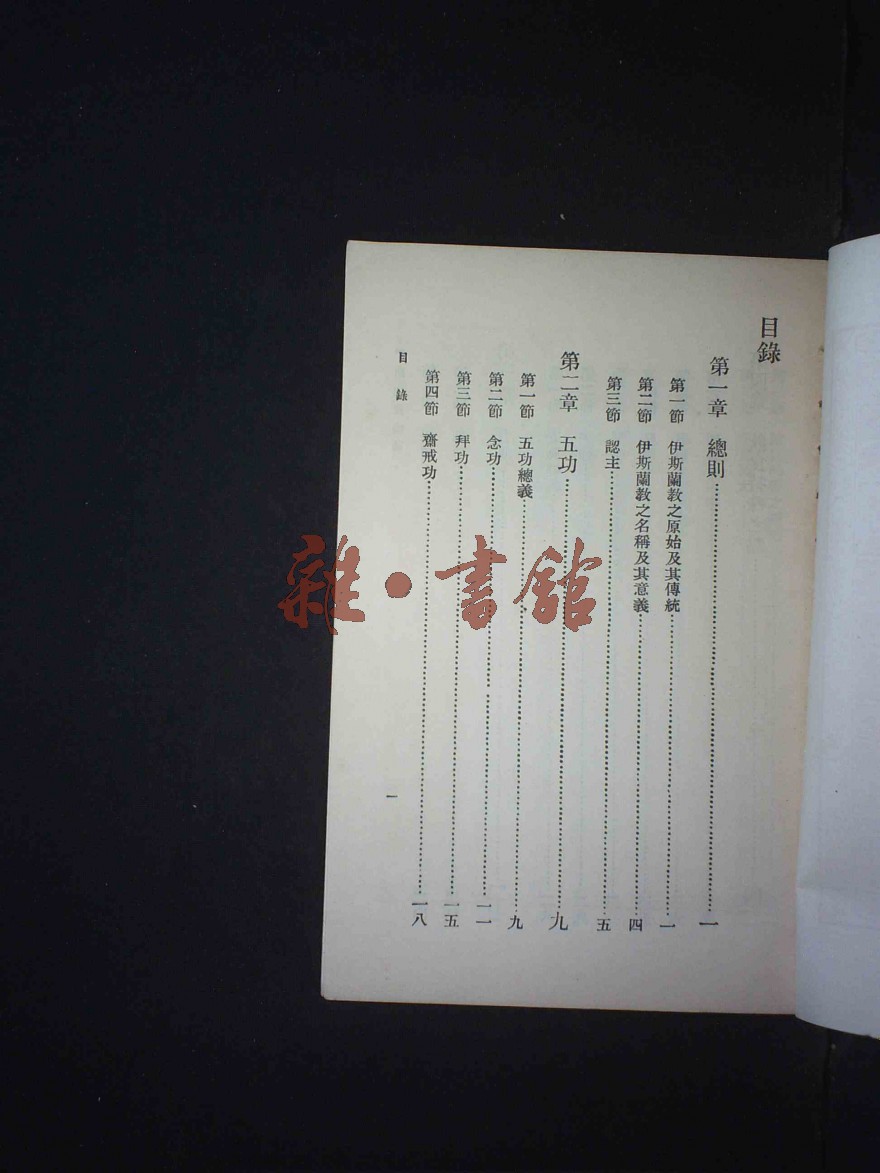 目錄
第一章 總則……一
第一節 伊斯蘭教之原始及其傳統……一
第二節 伊斯蘭教之名稱及其意義……四
第三節 認主……五
第二章 五功……九
第一節 五功總義……九
第二節 念功……一一
第三節 拜功……一五
第四節 齋戒功……一八
目錄
一
雜·書館